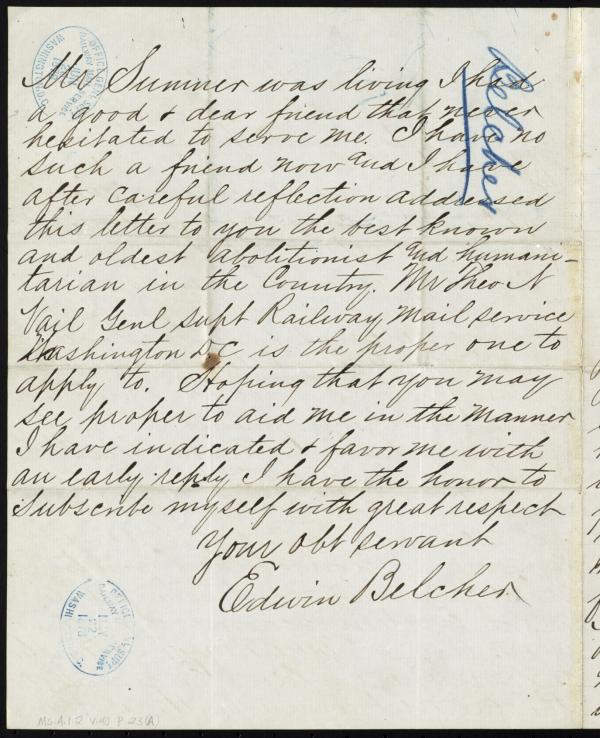 Mr Sumner was living I had
a good & dear friend that never
hesitated to serve me. I have no
such a friend now and I have
after careful reflection addressed
this letter to you the best known
and oldest abolitionist and humani-
tarian in the Country. Mr Theo N
Vail Genl Supt Railway Mail service
Washington DC is the proper one to
apply to. Hoping that you may
see proper to aid me in the manner
I have indicated & favor me with
an early reply I have the honor to
subscribe myself with great respect
Your obt servant
Edwin Belcher
Belcher
OFFICE GENL SUPT
RAILWAY MAIL SERVICE
Ms.A.1.2 v.40 P.23(A)